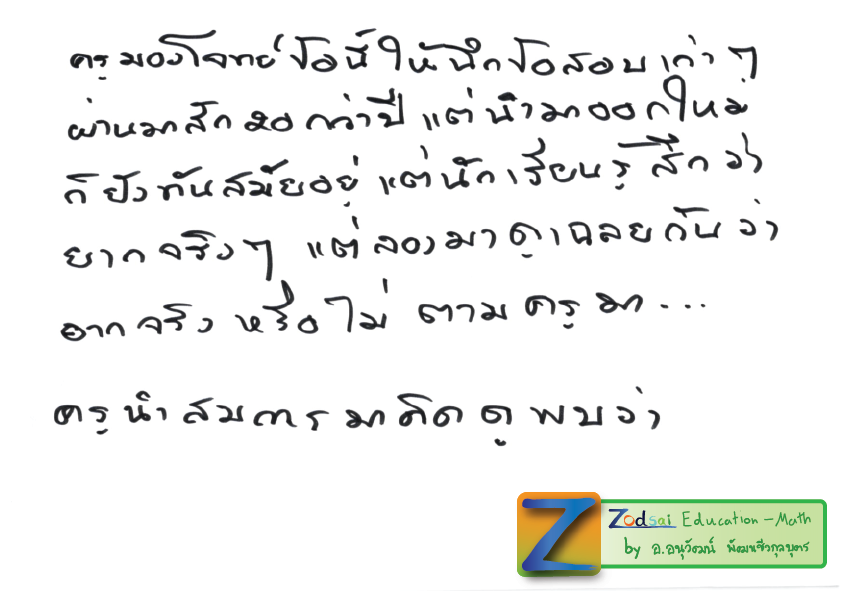 ครูมองโจทย์ข้อนี้ให้นึกข้อสอบเก่า ๆ
ผ่านมาสัก 20 กว่าปี แต่นำมาออกใหม่
ก็ยังทันสมัยอยู่ แต่นักเรียนรู้สึกว่า
ยากจริง ๆ แต่ลองมาดูเฉลยกันว่า
ยากจริง หรือไม่ ตามครูมา...
ครูนำสมการมาคิดดู พบว่า
Z Zodsai Education - Math
by อ.อนุวัฒน์